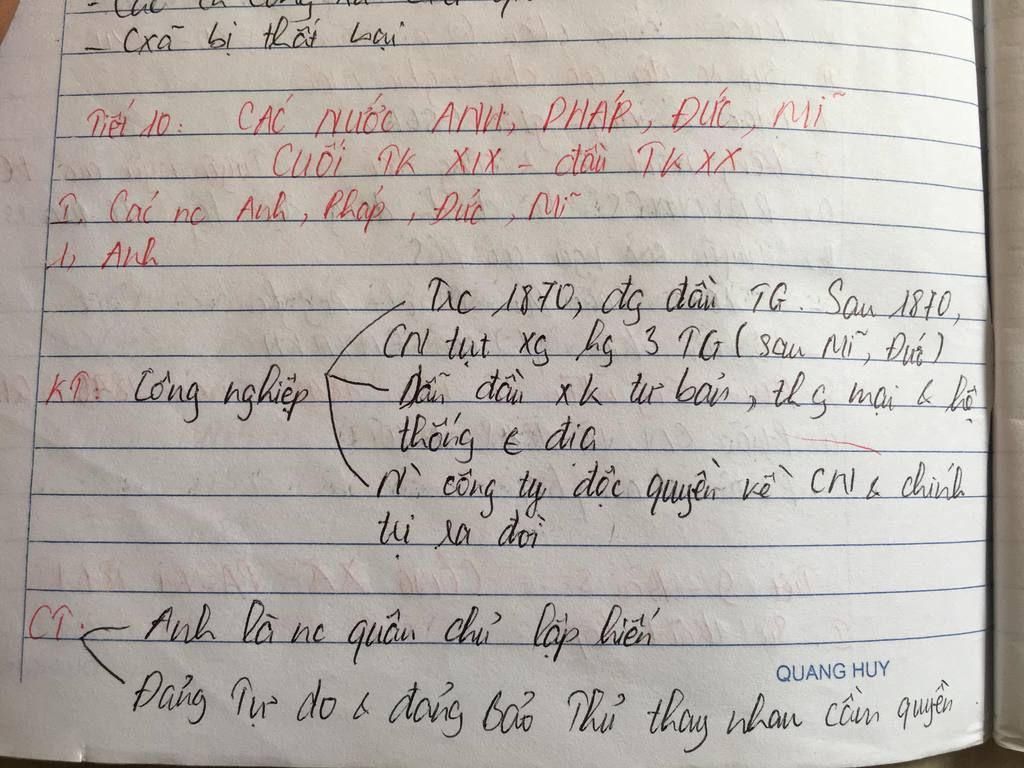 - Cxã bị thất bại
Tiết 10: CÁC NƯỚC ANH, PHÁP, ĐỨC, MĨ
CUỐI TK XIX - đầu TK XX
I, Các nc Anh, Pháp, Đức, Mĩ
1, Anh
Trc 1870, đg đầu TG. Sau 1870,
CN tụt xg hg 3 TG (sau Mĩ, Đức)
KT: Công nghiệp
Dẫn đầu xk tư bản, thg mại & hệ
thống € địa
N` công ty độc quyền về CN & chính
trị ra đời
CT:
Anh là nc quân chủ lập hiến
QUANG HUY
Đảng Tự do & đảng Bảo Thủ thay nhau cầm quyền